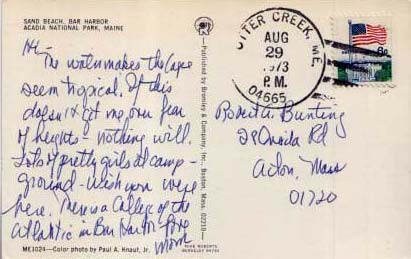 SAND BEACH, BAR HARBOR
ACADIA NATIONAL PARK, MAINE
Hi-
The water makes the Cape
seem tropical. If this
doesn't get me over fear
of heights - nothing will.
Lots of pretty girls at camp-
ground - wish you were
here. There's a College of the
Atlantic in Bar Harbor. Love
Mom
ME3024—Color photo by Paul A. Knaut, Jr.
—Published by Bromley & Company, Inc., Boston, Mass. 02210—
MIKE ROBERTS
BERKELEY 94703
OTTER CREEK, ME.
AUG
29
1973
P.M.
04665
8c
Bunting
28 Oneida Rd
Acton, Mass
01720